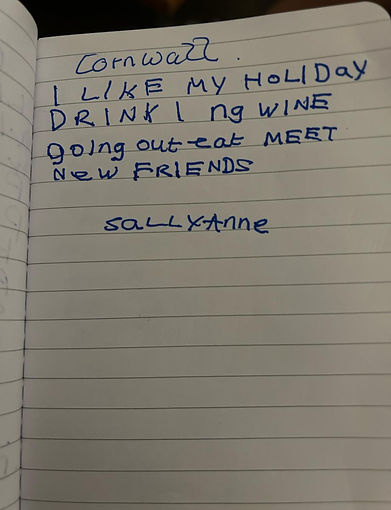 Cornwall.
I LIKE MY HOLIDay
DRINK I ng WINE
going out eat MEET
New FRIENDS
SaLLYAnne